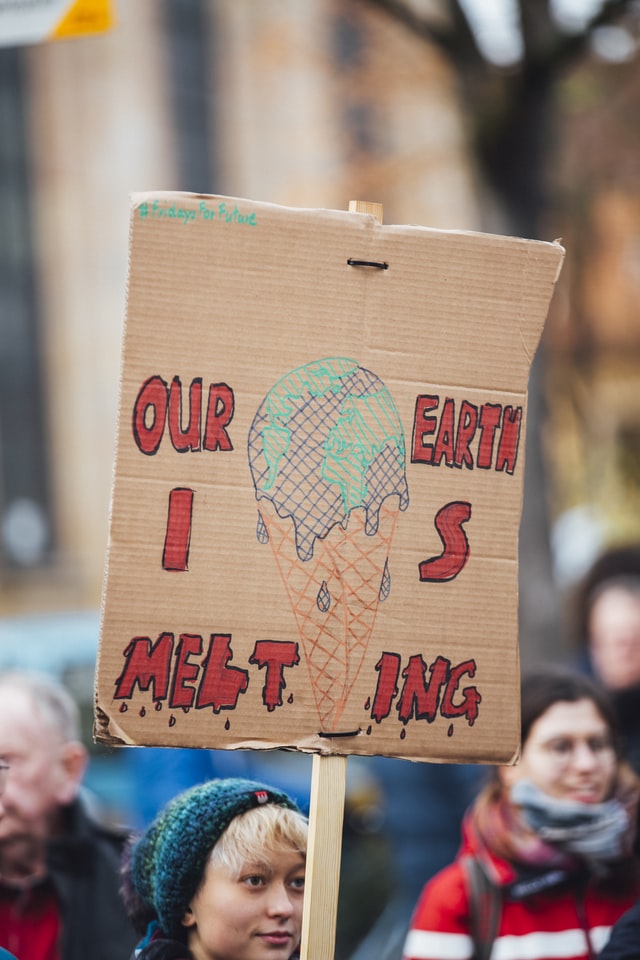 #Fridays For Future
OUR EARTH
I S
MELT ING